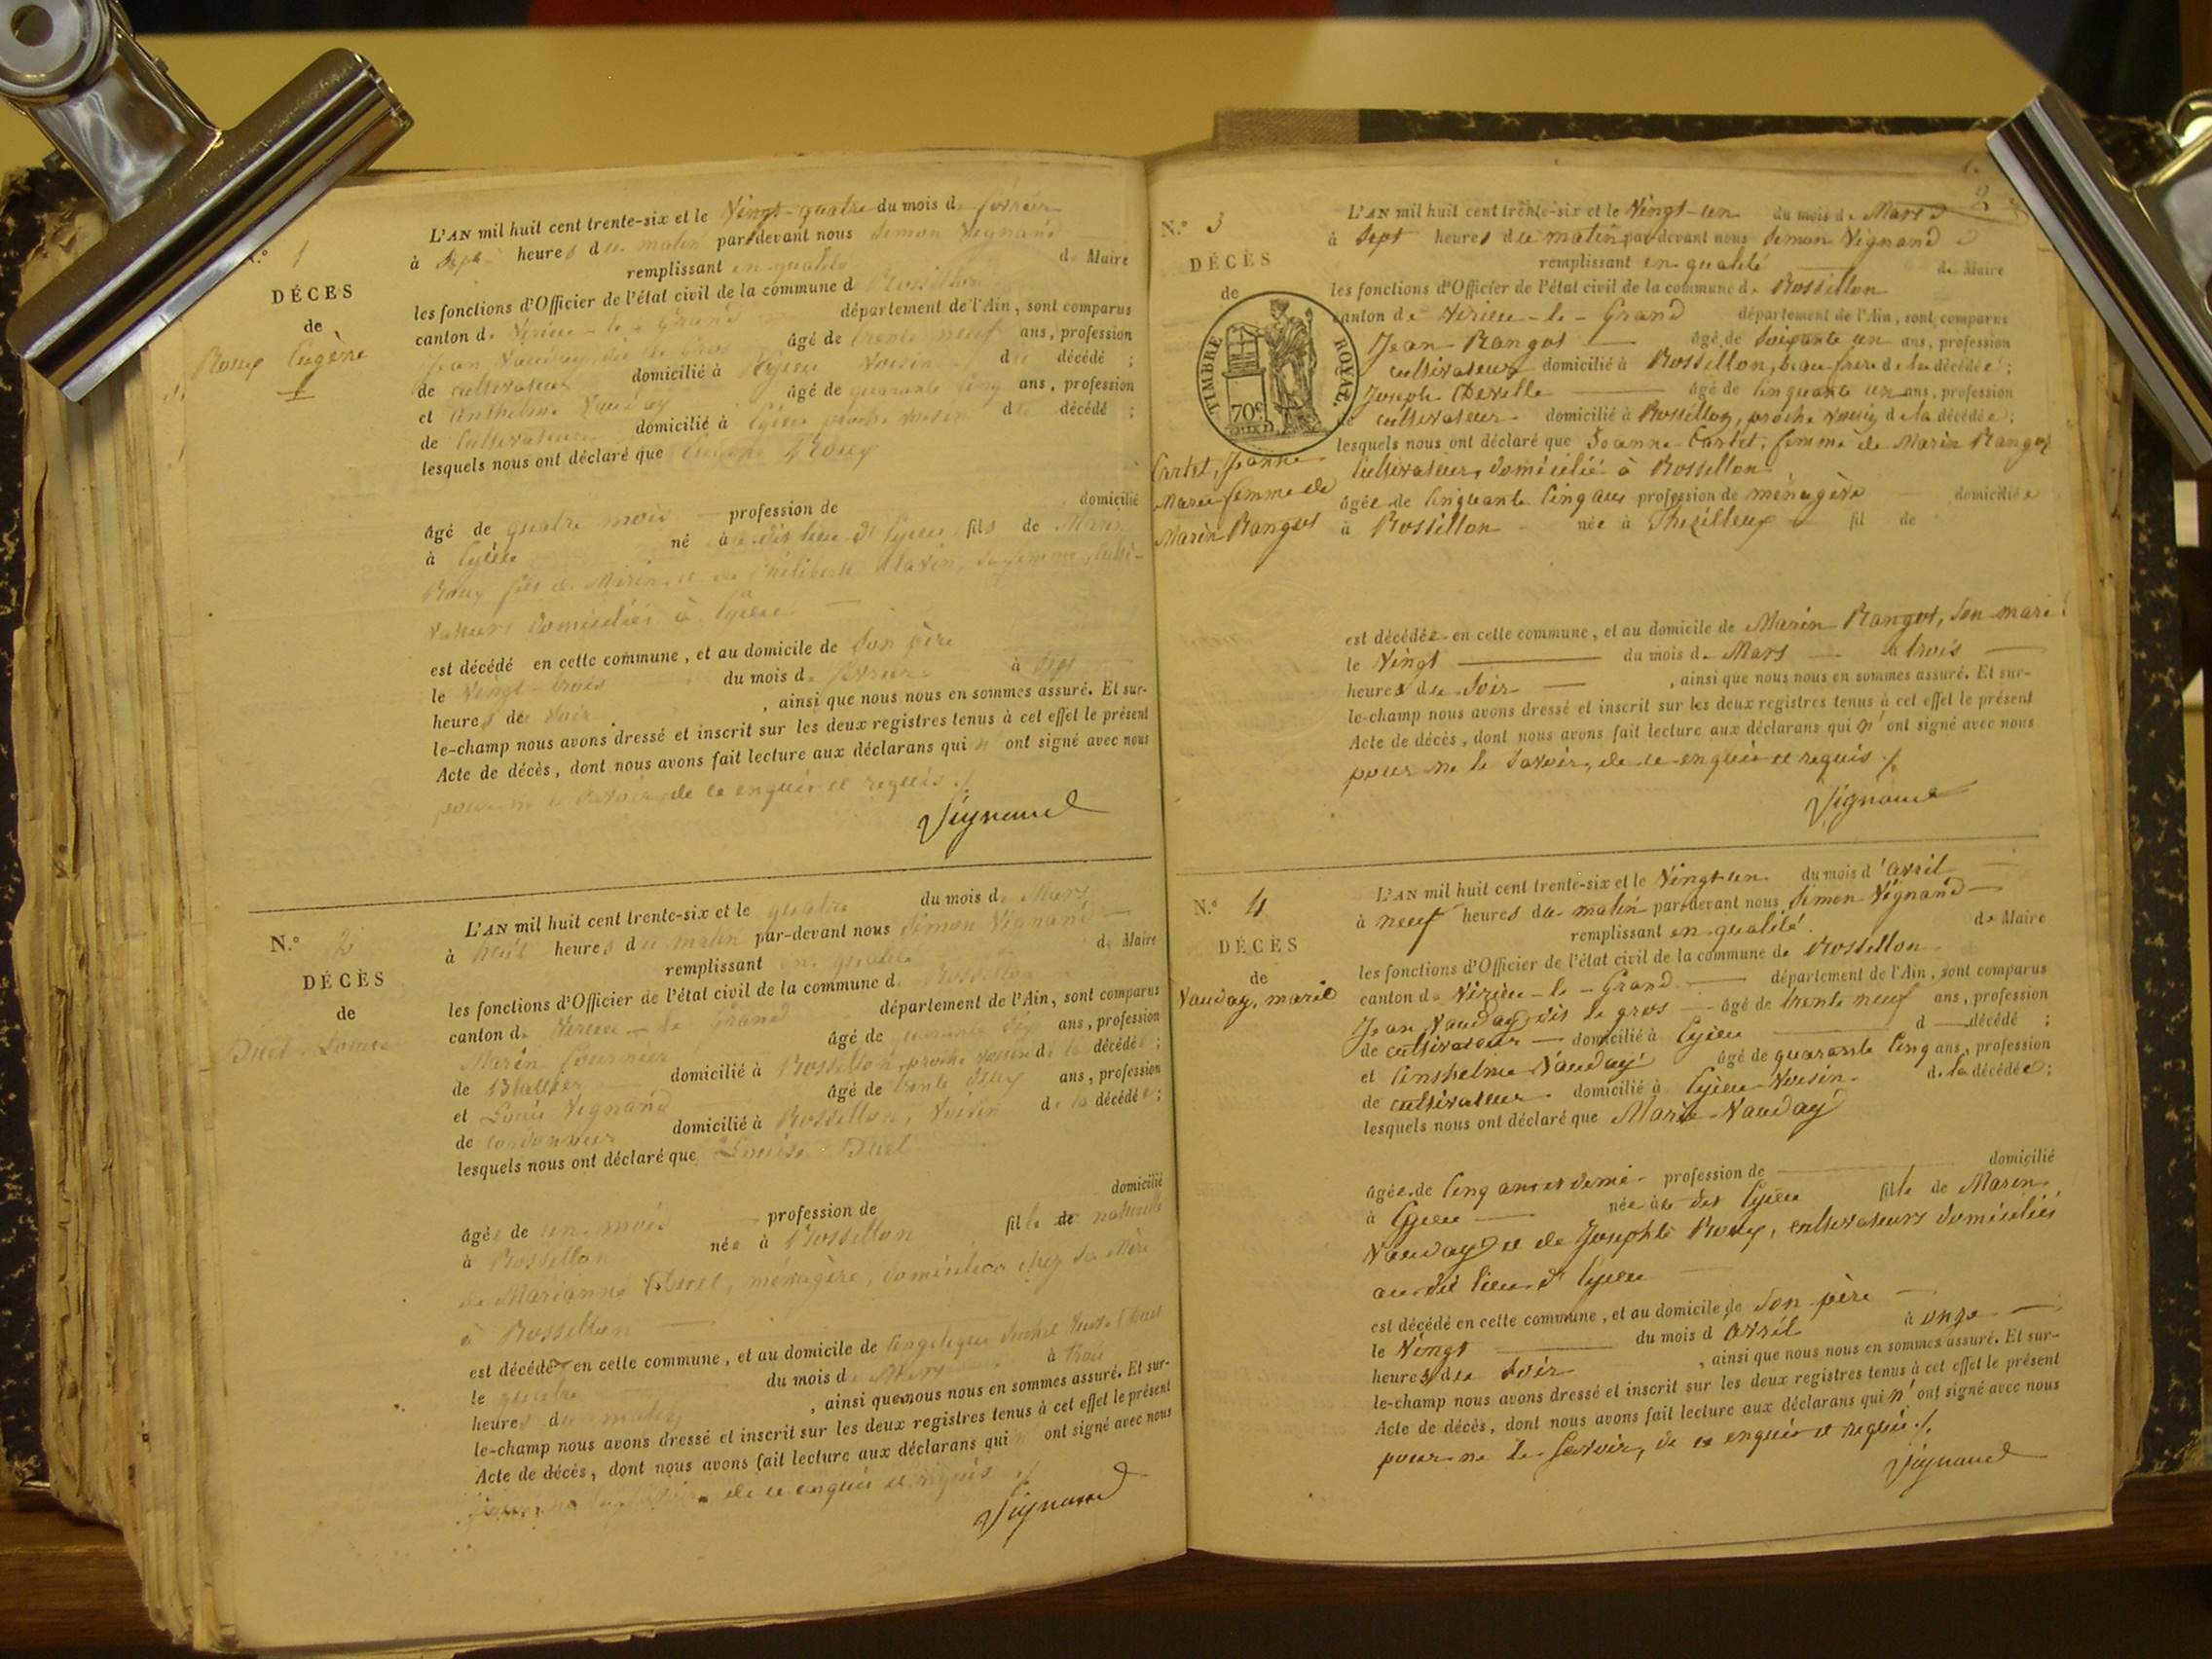 N.° 1
DÉCES
de
Roux Eugène
L'AN mil huit cent trente-six et le Vingt-quatre du mois de février
à Sept heures du matin par-devant nous Simon Vignand
remplissant en qualité de Maire
les fonctions d'Officier de l'état civil de la commune de Rossillon
canton de Virieu-le-Grand département de l'Ain, sont comparus
Jean Vauday dit le gros âgé de trente neuf ans, profession
de cultivateur domicilié à Voisin d décédé ;
et Anthelme Vauday âgé de quarante cinq ans, profession
de Cultivateur domicilié à proche voisin d décédé ;
lesquels nous ont déclaré que Eugène Roux
âgé de quatre mois profession de domicilié
à né à fils de Marin
Roux fils de Marin, et de sa femme, Culti-
vateurs domiciliés à
est décédé en cette commune, et au domicile de Son père
le Vingt-trois du mois de février à Sept
heures de Soir , ainsi que nous nous en sommes assuré. Et sur-
le-champ nous avons dressé et inscrit sur les deux registres tenus à cet effet le présent
Acte de décès, dont nous avons fait lecture aux déclarans qui n' ont signé avec nous
pour ne le Savoir, de ce enquis et requis ./.
Vignand
N.° 2
DÉCÈS
de
Duet Louise
L'AN mil huit cent trente-six et le quatre du mois de Mars
à heures du matin par-devant nous Simon Vignand
remplissant en qualité de Maire
les fonctions d'Officier de l'état civil de la commune de Rossillon
canton de Virieu-le-Grand département de l'Ain, sont comparus
Marin Fournier âgé de quarante ans, profession
de domicilié à Rossillon, proche voisin de la décédée ;
et Louis Vignand âgé de trente ans, profession
de Cordonnier domicilié à Rossillon, Voisin de la décédée ;
lesquels nous ont déclaré que Louise Duet
âgée de un mois profession de domicilié
à Rossillon née à Rossillon fille de naturelle
de Marianne Duet, ménagère, domiciliée chez Sa Mère
à Rossillon
est décédé en cette commune, et au domicile de
le quatre du mois de Mars à trois
heures du matin , ainsi que nous nous en sommes assuré. Et sur-
le-champ nous avons dressé et inscrit sur les deux registres tenus à cet effet le présent
Acte de décès, dont nous avons fait lecture aux déclarans qui ont signé avec nous
pour ne le de ce enquis et requis ./.
Vignand
2
N.° 3
DÉCÈS
de
TIMBRE ROYAL.
70c
Cartet, Jeanne
Marie femme de
Marin Rangot
L'AN mil huit cent trente-six et le Vingt-un du mois de Mars
à Sept heures du matin par-devant nous Simon Vignand
remplissant en qualité de Maire
les fonctions d'Officier de l'état civil de la commune de Rossillon
canton de Virieu-le-Grand département de l'Ain, sont comparus
Jean Rangot âgé de Soixante un ans, profession
cultivateur domicilié à Rossillon, beau frère de la décédée ;
Joseph Deville âgé de Cinquante un ans, profession
de cultivateur domicilié à Rossillon, proche voisin de la décédée ;
lesquels nous ont déclaré que Jeanne Cartet, femme de Marin Rangot
Cultivateur, domicilié à Rossillon
âgée de Cinquante Cinq ans profession de ménagère domiciliée
à Rossillon née à Thézillieux fil de
est décédée en cette commune, et au domicile de Marin Rangot, Son mari
le Vingt du mois de Mars à trois
heures du Soir , ainsi que nous nous en sommes assuré. Et sur-
le-champ nous avons dressé et inscrit sur les deux registres tenus à cet effet le présent
Acte de décès, dont nous avons fait lecture aux déclarans qui n' ont signé avec nous
pour ne le Savoir, de ce enquis et requis ./.
Vignand
N.° 4
DÉCÈS
de
Vauday, marie
L'AN mil huit cent trente-six et le Vingt-un du mois d'avril
à neuf heures du matin par-devant nous Simon Vignand
remplissant en qualité de Maire
les fonctions d'Officier de l'état civil de la commune de Rossillon
canton de Virieu-le-Grand département de l'Ain, sont comparus
Jean Vauday dit le gros âgé de trente neuf ans, profession
de cultivateur domicilié à Egieu d décédé ;
et Anthelme Vauday âgé de quarante Cinq ans, profession
de cultivateur domicilié à Egieu Voisin de la décédée ;
lesquels nous ont déclaré que Marie Vauday
âgée de Cinq ans et demi profession de domicilié
à Egieu née au dit Egieu fille de Marin
Vauday et de Josephte Roux, cultivateurs domiciliés
au dit lieu d'Egieu
est décédé en cette commune, et au domicile de Son père
le Vingt du mois d'avril à onze
heures du Soir , ainsi que nous nous en sommes assuré. Et sur-
le-champ nous avons dressé et inscrit sur les deux registres tenus à cet effet le présent
Acte de décès, dont nous avons fait lecture aux déclarans qui n' ont signé avec nous
pour ne le Savoir, de ce enquis et requis ./.
Vignand